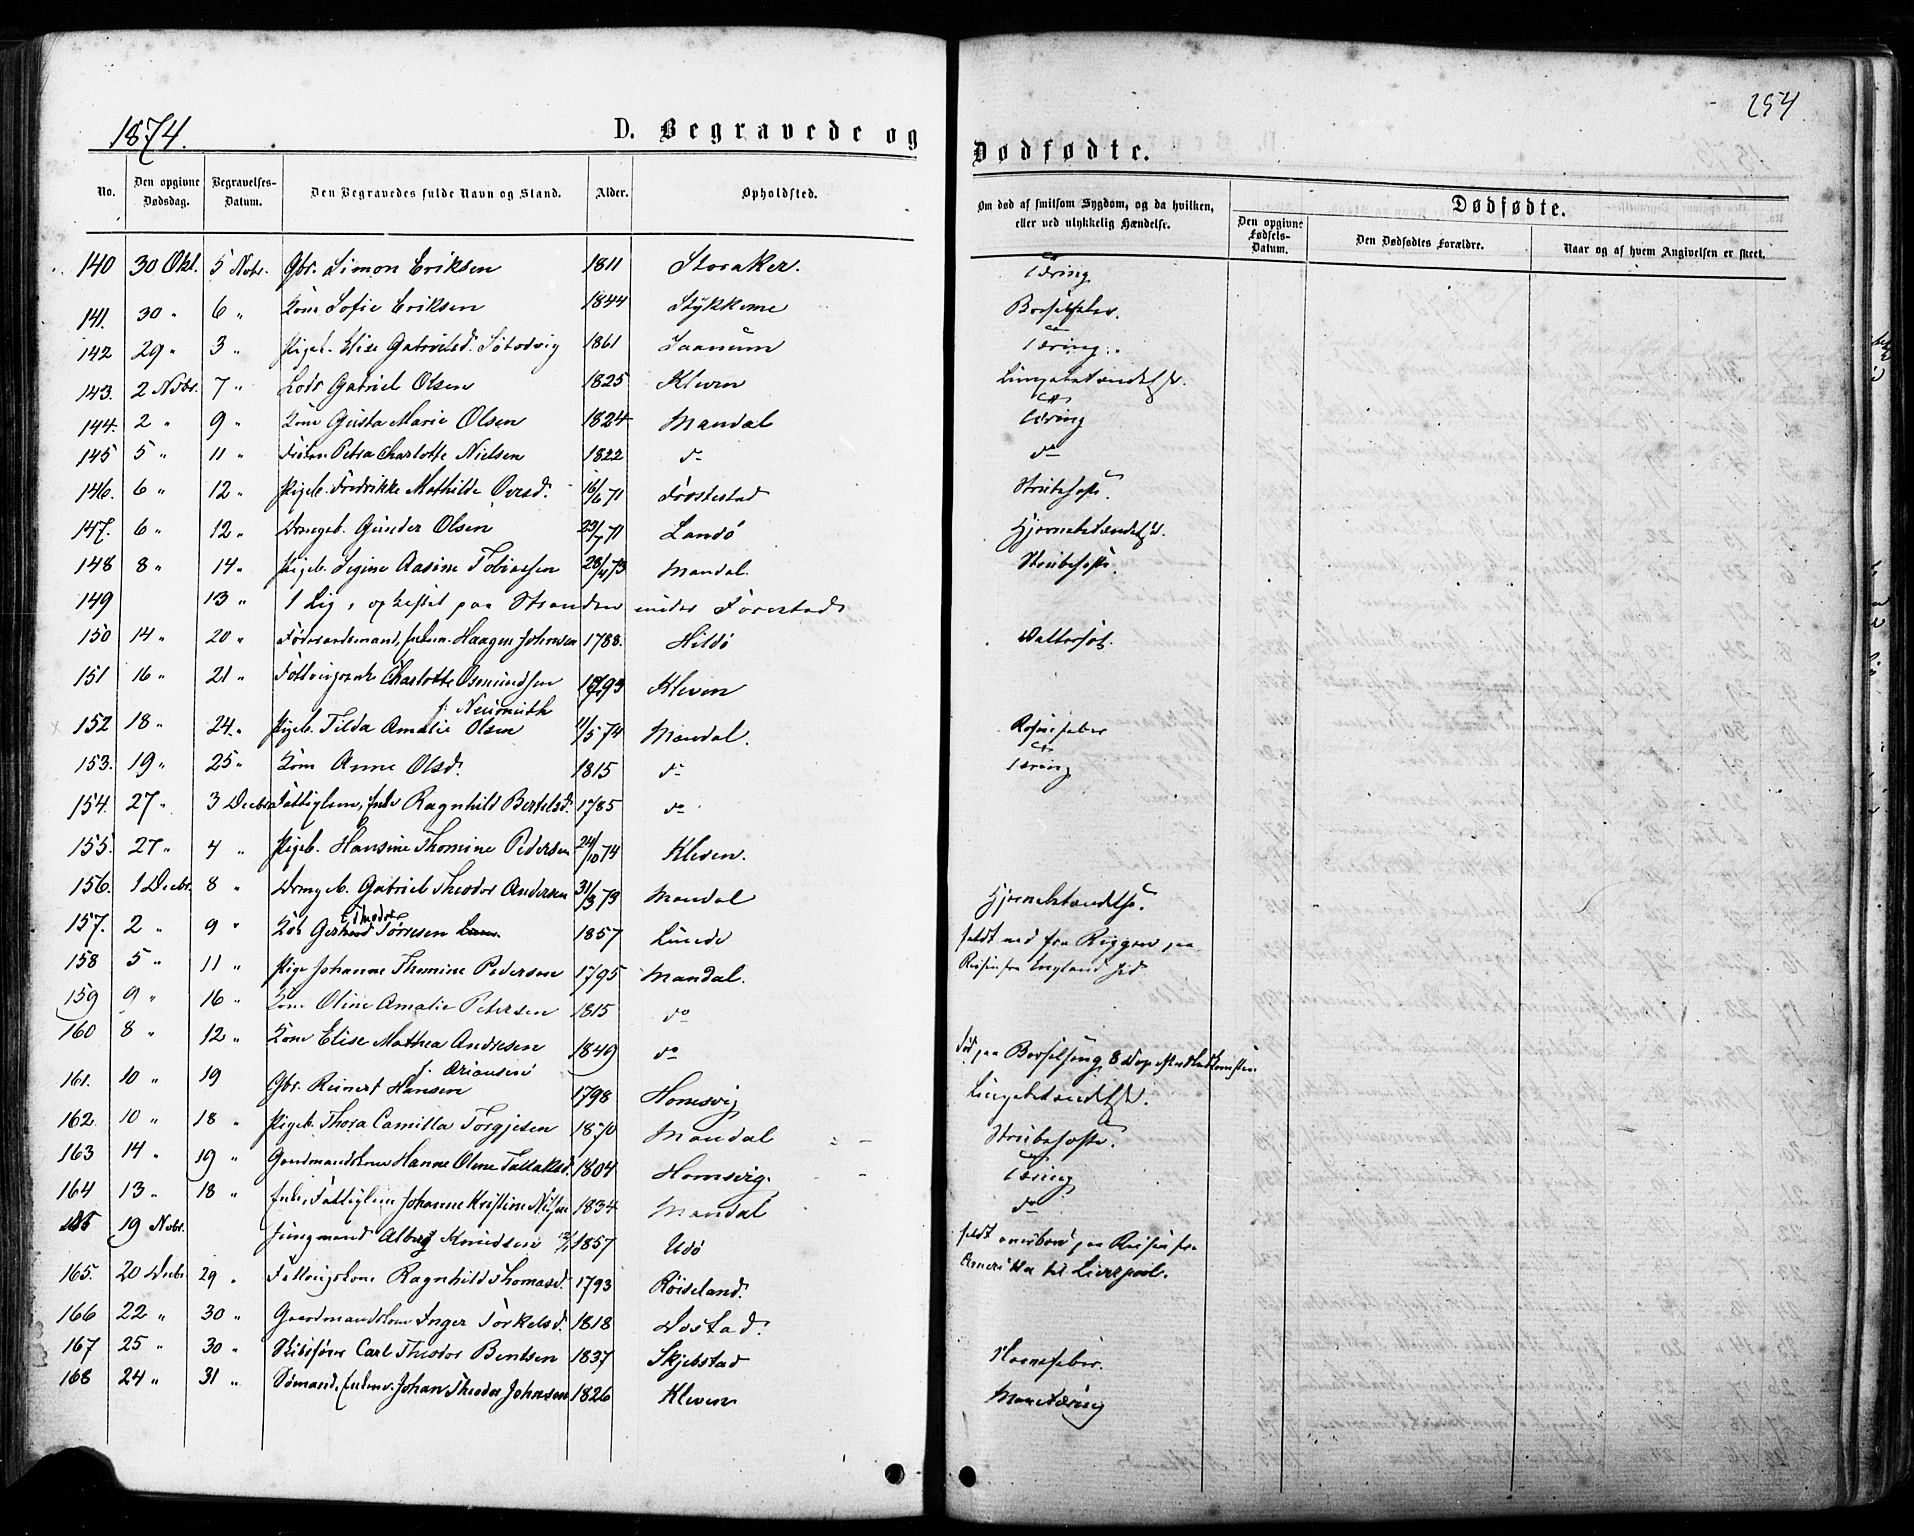 1874.
D. Begravede og
Dødfødte.
254
No.
Den opgivne Dødsdag.
Begravelses-Datum.
Den Begravedes fulde Navn og Stand.
Alder.
Opholdsted.
Om død af smitsom Sygdom, og da hvilken, eller ved ulykkelig Hændelse.
Dødfødte.
Den opgivne Fødsels-Datum.
Den Dødfødtes Forældre.
Naar og af hvem Angivelsen er skeet.
140 30 Okt. 5 Novbr. Gbr. Simon Eriksen 1811 Storaker. Tæring
141. 30 " 6 " Kone Sofie Eriksen 1844 Stykkeme Barselfeber.
142 29 " 3 " Pigeb. Elise Gabrielsd. 1861 Saanum Tæring.
143. 2 Novbr. 7 " Lods Gabriel Olsen 1825 Kleven Lungebetændelse.
144. 2 " 9 " Kone Gusta Marie Olsen 1824 Mandal Tæring
145 5 " 11 " Petra Charlotte Nielsen 1822 do do
146. 6 " 12 " Pigeb. Fredrikke Mathilde Ovesd. 16/6 71 Frøstestad Strubehoste.
147. 6 " 12 " Drengeb. Gunder Olsen 29/7 71 Landø Hjernebetændelse.
148 8 " 14 " Pigeb. Signe Aasine Tobiasen 28/4 73 Mandal. Strubehoste.
149 13 " 1 Lig, opkastet paa Stranden under Forestad
150 14 " 20 " Føderaadsmand, Enkem. Haagen Johnsen 1788. Hildø Vattersot.
151 16 " 21 " Charlotte Osmundsen f. Neumuth 1793 Kleven
152 18 " 24 " Pigeb. Tilda Amalie Olsen 11/5 74 Mandal. Rosenfeber
153. 19 " 25 " Kone Anne Olsd. 1815 do Tæring
154. 27 " 3 Decbr Fattiglem, Enke Ragnhild Bertelsd. 1785 do
155. 27 " 4 " Pigeb. Hansine Thomine Pedersen 24/10 74 Kleven.
156. 1 Decbr. 8 " Drengeb. Gabriel Theodor Andersen 31/3 73 Mandal Hjernebetændelse.
157. 2 " 9 " Theodor Tørresen 1857 Lunde faldt ned fra Riggen paa
Reisen fra England hid
158 5 " 11 " Pige Johanne Thomine Pedersen 1795 Mandal.
159 9 " 16 " Kone Oline Amalie Petersen 1815 do
160 8 " 12 " Kone Elise Mathea Andresen 1849 do Død paa Barselseng 8 Dage efter Nedkomsten
161. 10 " 19 Gbr. Reinert Hansen 1798 Homsvig Lungebetændelse.
162. 10 " 18 " Pigeb. Thora Camilla Torgjesen 1870 Mandal Strubehoste.
163 14 " 19 " Gaardmandskone Hanne Oline Tallaksd. 1804 Homsvig. Tæring
164 13 " 18 " Enke, Fattiglem Johanne Kristine Nilsen 1834 Mandal do
19 Novbr. Jungmand Albert Knudsen 1857 Udø faldt overbord paa Reisen fra
Amerika til Liverpool.
165. 20 Decbr 29 " Ragnhild Thomasd. 1793 Røiseland.
166 22 " 30 " Gaardmandskone Inger Torkelsd. 1818 Dostad.
167 25 " 30 " Skibsfører Carl Theodor Bentsen 1837 Skjebstad
168 24 " 31 " Sømand, Enkem. Johan Theodor Johnsen 1826 Kleven Mavetæring